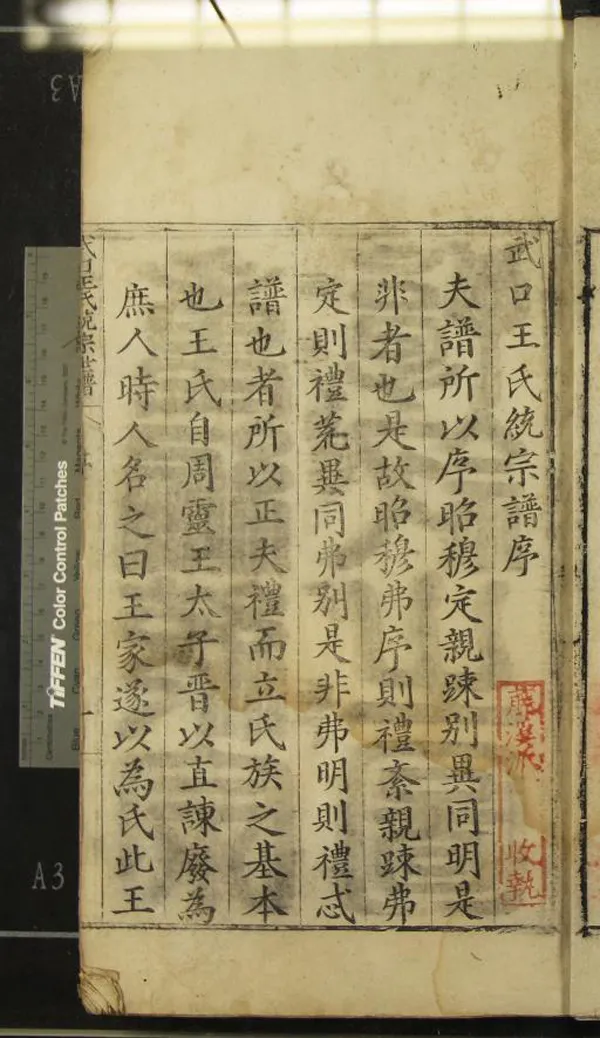 武口王氏統宗譜序
夫譜所以序昭穆定親踈別異同明是
非者也是故昭穆弗序則禮紊親踈弗
定則禮荒異同弗別是非弗明則禮忒
譜也者所以正夫禮而立氏族之基本
也王氏自周靈王太子晋以直諫廢為
庶人時人名之曰王家遂以為氏此王
武口王氏統宗世譜
派 收執
TIFFEN Color Control Patches
A3
A3